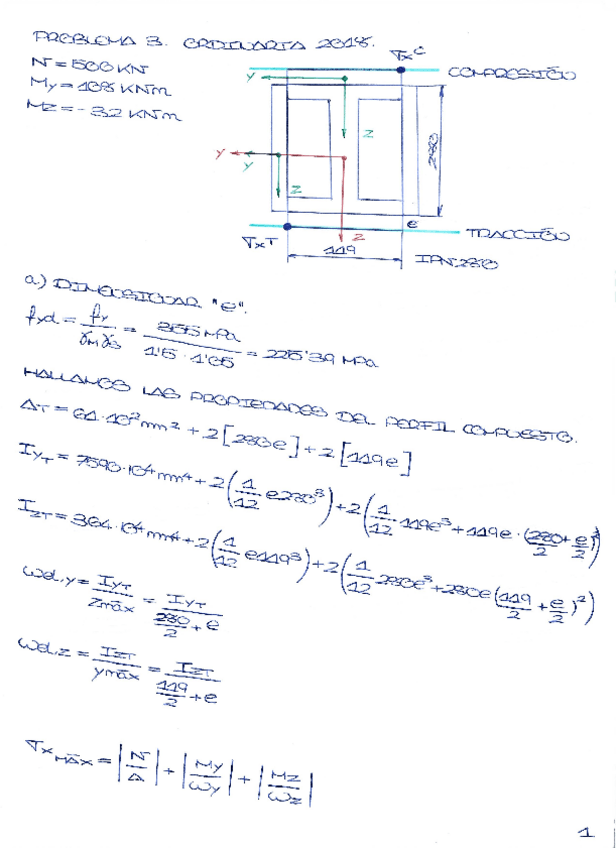 PROBLEMA 3. ORDINARIA 2018.
N = 500 KN
My = 108 KNm
Mz = -32 KNm
σx^C
COMPRESIÓN
y
z
y
y
z
z
280
e
σx^T
TRACCIÓN
119
IPN 280
a) DIMENSIONAR "e".
fyd = fy / (γM γs) = 355 MPa / (1'5 · 1'05) = 225'39 MPa
HALLAMOS LAS PROPIEDADES DEL PERFIL COMPUESTO.
AT = 61·10² mm² + 2[280e] + 2[119e]
IyT = 7590·10⁴ mm⁴ + 2(1/12 e280³) + 2(1/12 119e³ + 119e · (280/2 + e/2)²)
IzT = 364·10⁴ mm⁴ + 2(1/12 e119³) + 2(1/12 280e³ + 280e(119/2 + e/2)²)
Wel.y = IyT / zmáx = IyT / (280/2 + e)
Wel.z = IzT / ymáx = IzT / (119/2 + e)
σx MÁX = |N/A| + |My/Wy| + |Mz/Wz|
1